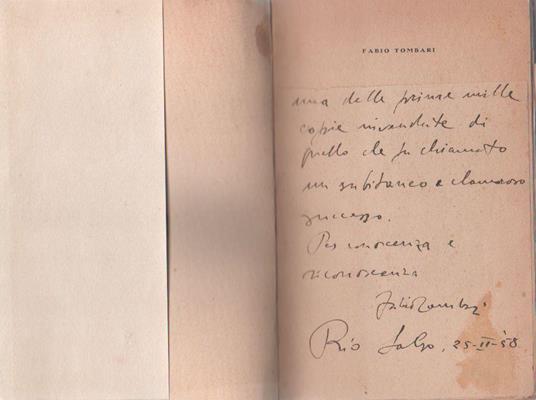 FABIO TOMBARI
una delle prime mille
copie invendute di
quello che fu chiamato
un subitaneo e clamoroso
successo.
Per conoscenza e
riconoscenza
Fabio Tombari
Rio Salso, 25-II-58